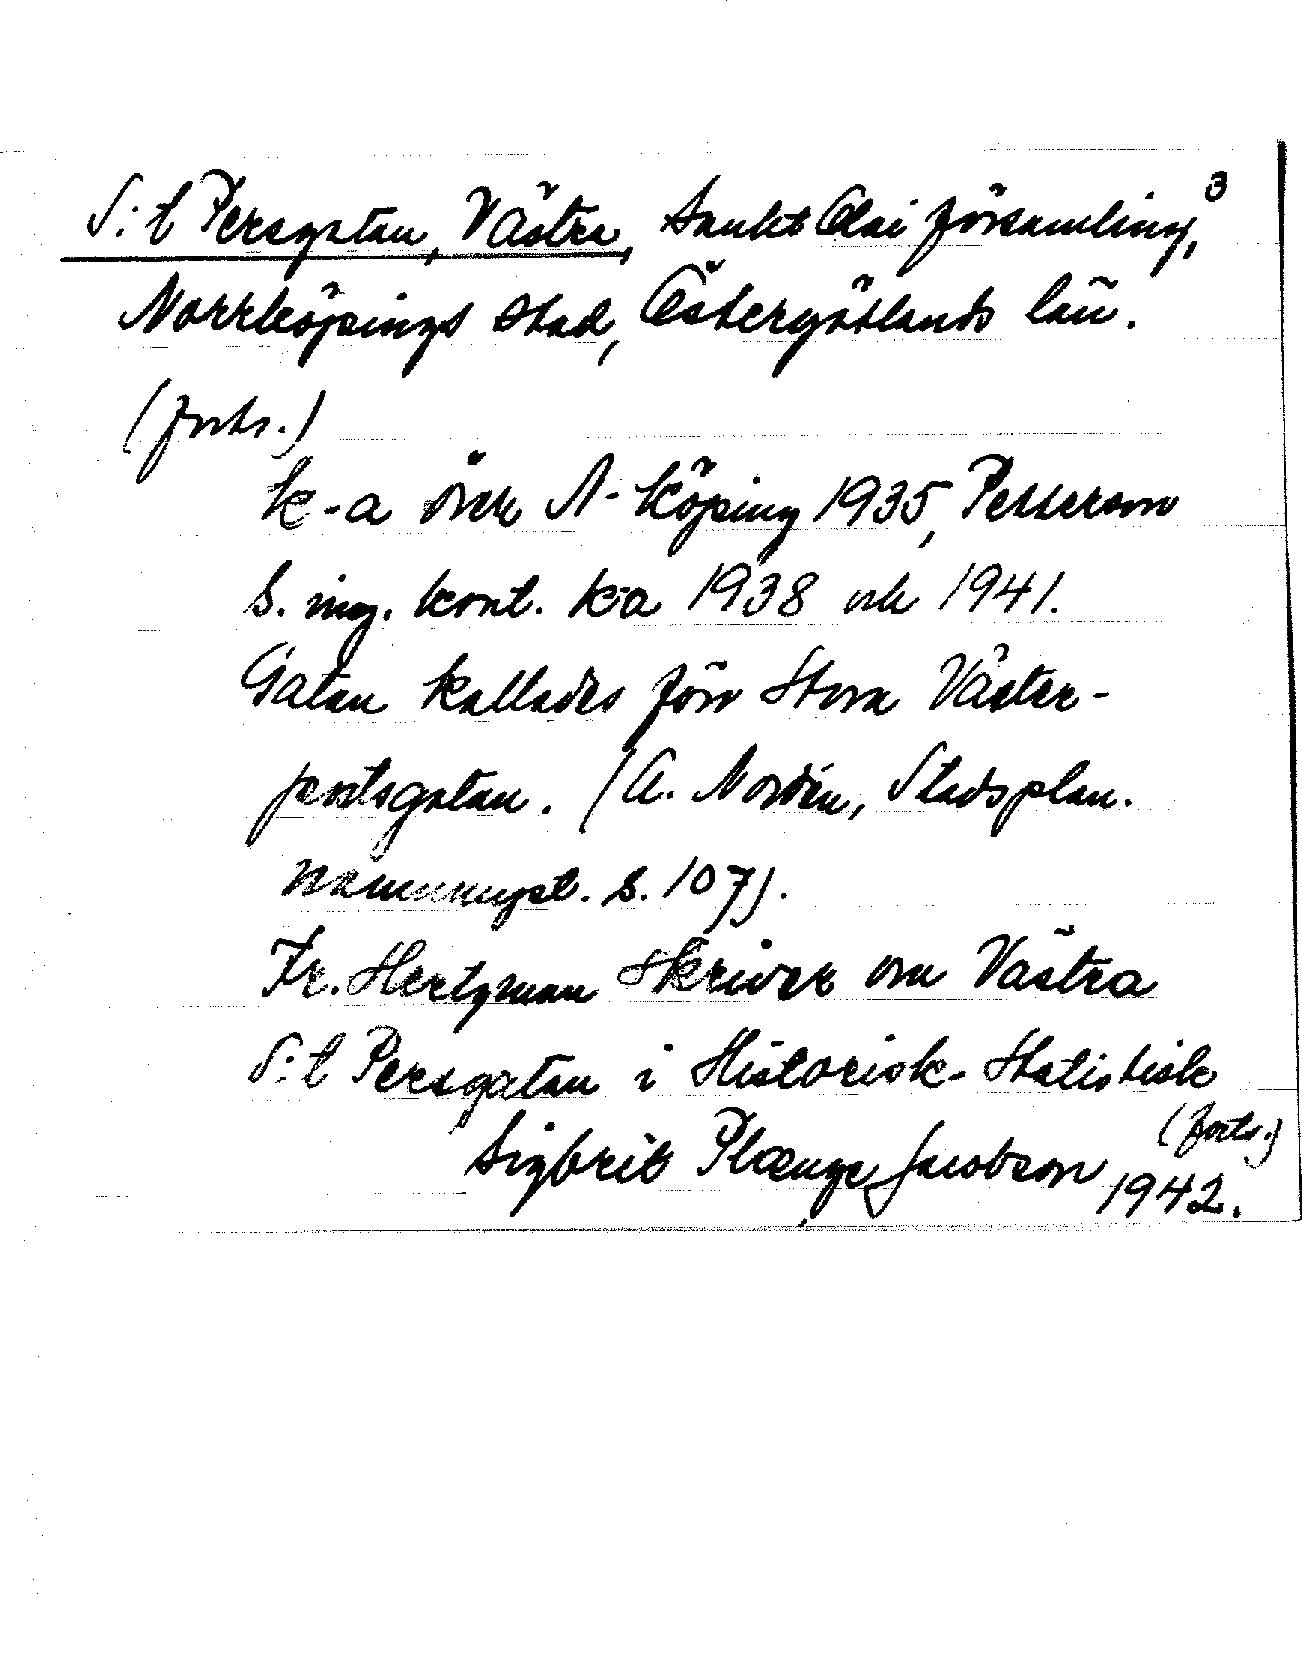 3
S:t Persgatan, Västra, Sankt Olai församling,
Norrköpings stad, Östergötlands län.
(forts.)
k-a över N-köping 1935, Petterson
s. ing. kont. k-a 1938 och 1941.
Gatan kallades förr Stora Väster-
portsgatan. (A. Nordén, Stadsplan.
s. 107).
Fr. Hertzman skriver om Västra
S:t Persgatan i Historisk-Statistisk
(forts.)
Sigbrit Plænge Jacobson 1942.